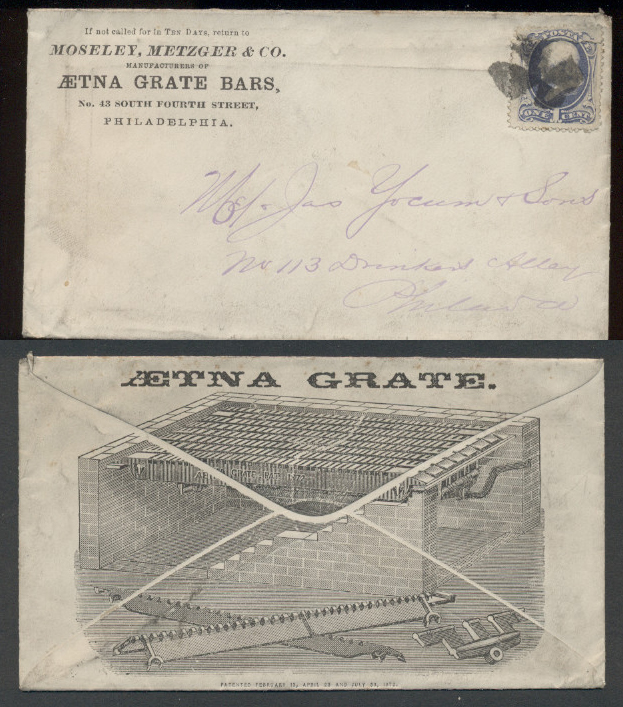 If not called for in TEN DAYS, return to
MOSELEY, METZGER & CO.
MANUFACTURERS OF
ÆTNA GRATE BARS,
No. 43 SOUTH FOURTH STREET,
PHILADELPHIA.
POSTAGE
ONE 1 CENT
Jas Yocum & Sons
No 113 Drinkers Alley
Philad
ÆTNA GRATE.
PATENTED FEBRUARY APRIL AND JULY